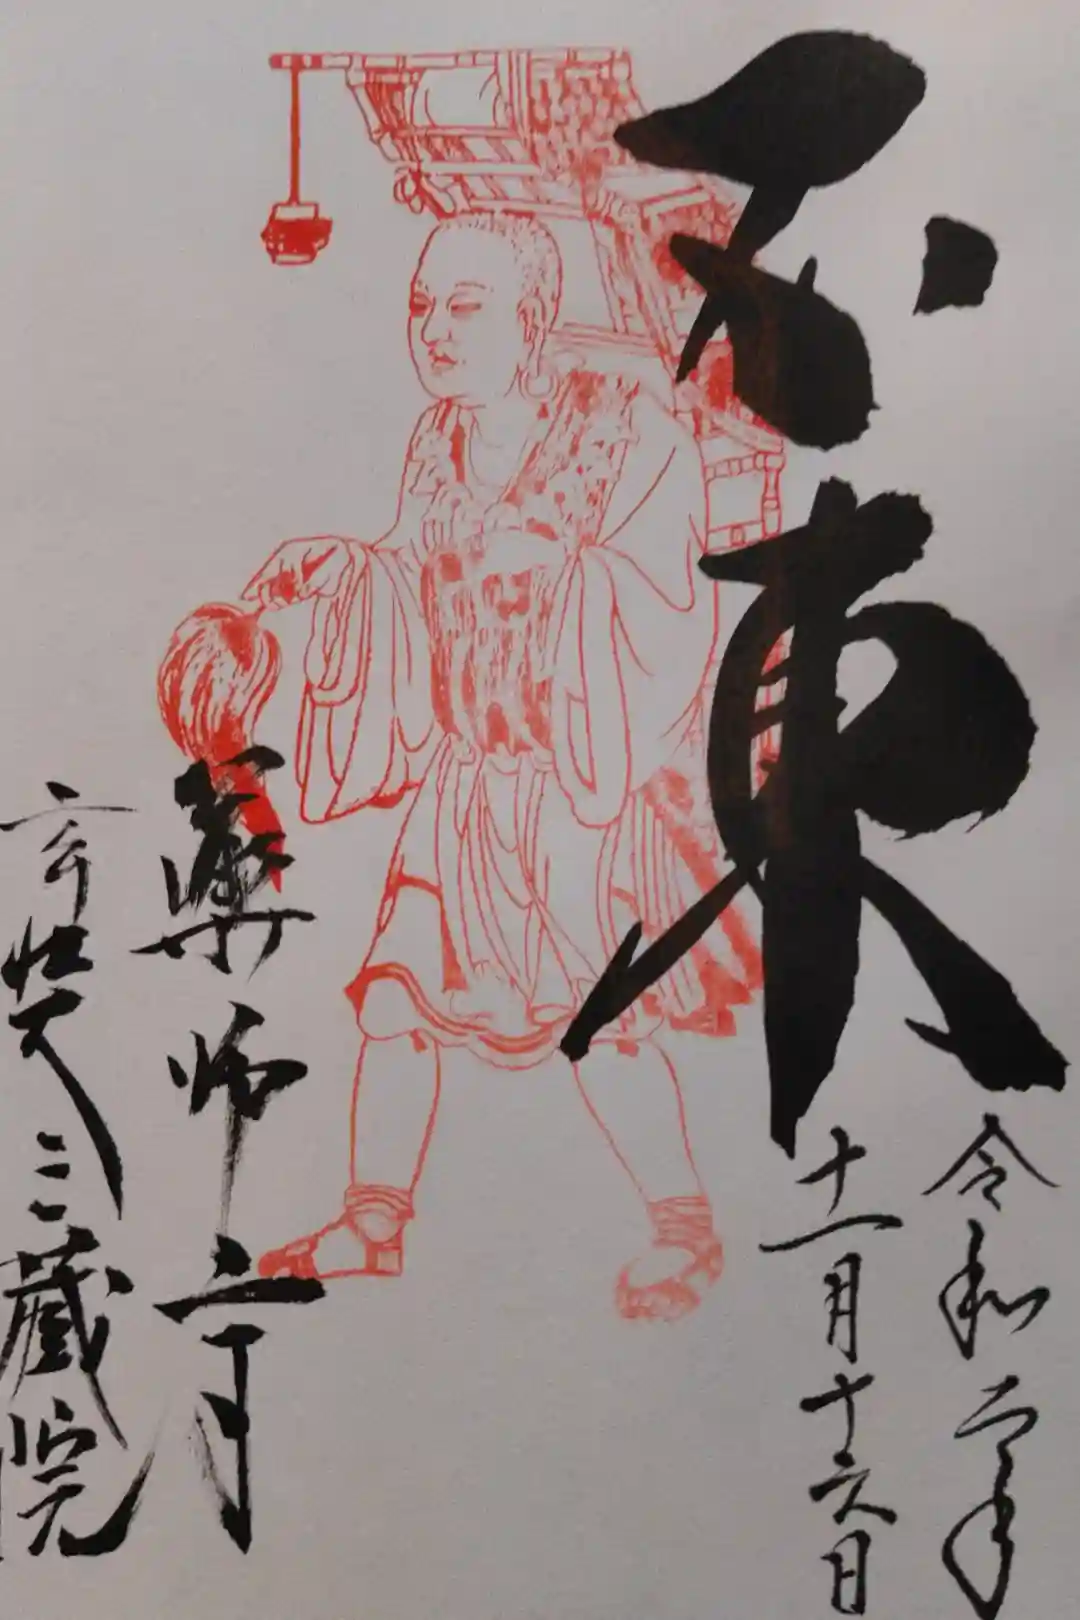 不東
令和二年
十一月十六日
薬師寺
玄奘三蔵院